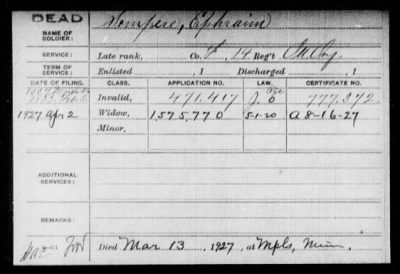 DEAD
NAME OF SOLDIER: Dempire, Ephraim
SERVICE: Late rank, Co. F, 14 Reg't
TERM OF SERVICE: Enlisted , 1 Discharged , 1
DATE OF FILING. CLASS. APPLICATION NO. LAW. CERTIFICATE NO.
Invalid, 471,417 777,372
1927 Apr 2 Widow, 1575770 5-1-20 A 8-16-27
Minor,
ADDITIONAL SERVICES:
REMARKS:
Died Mar 13, 1927, at Mpls, Minn.